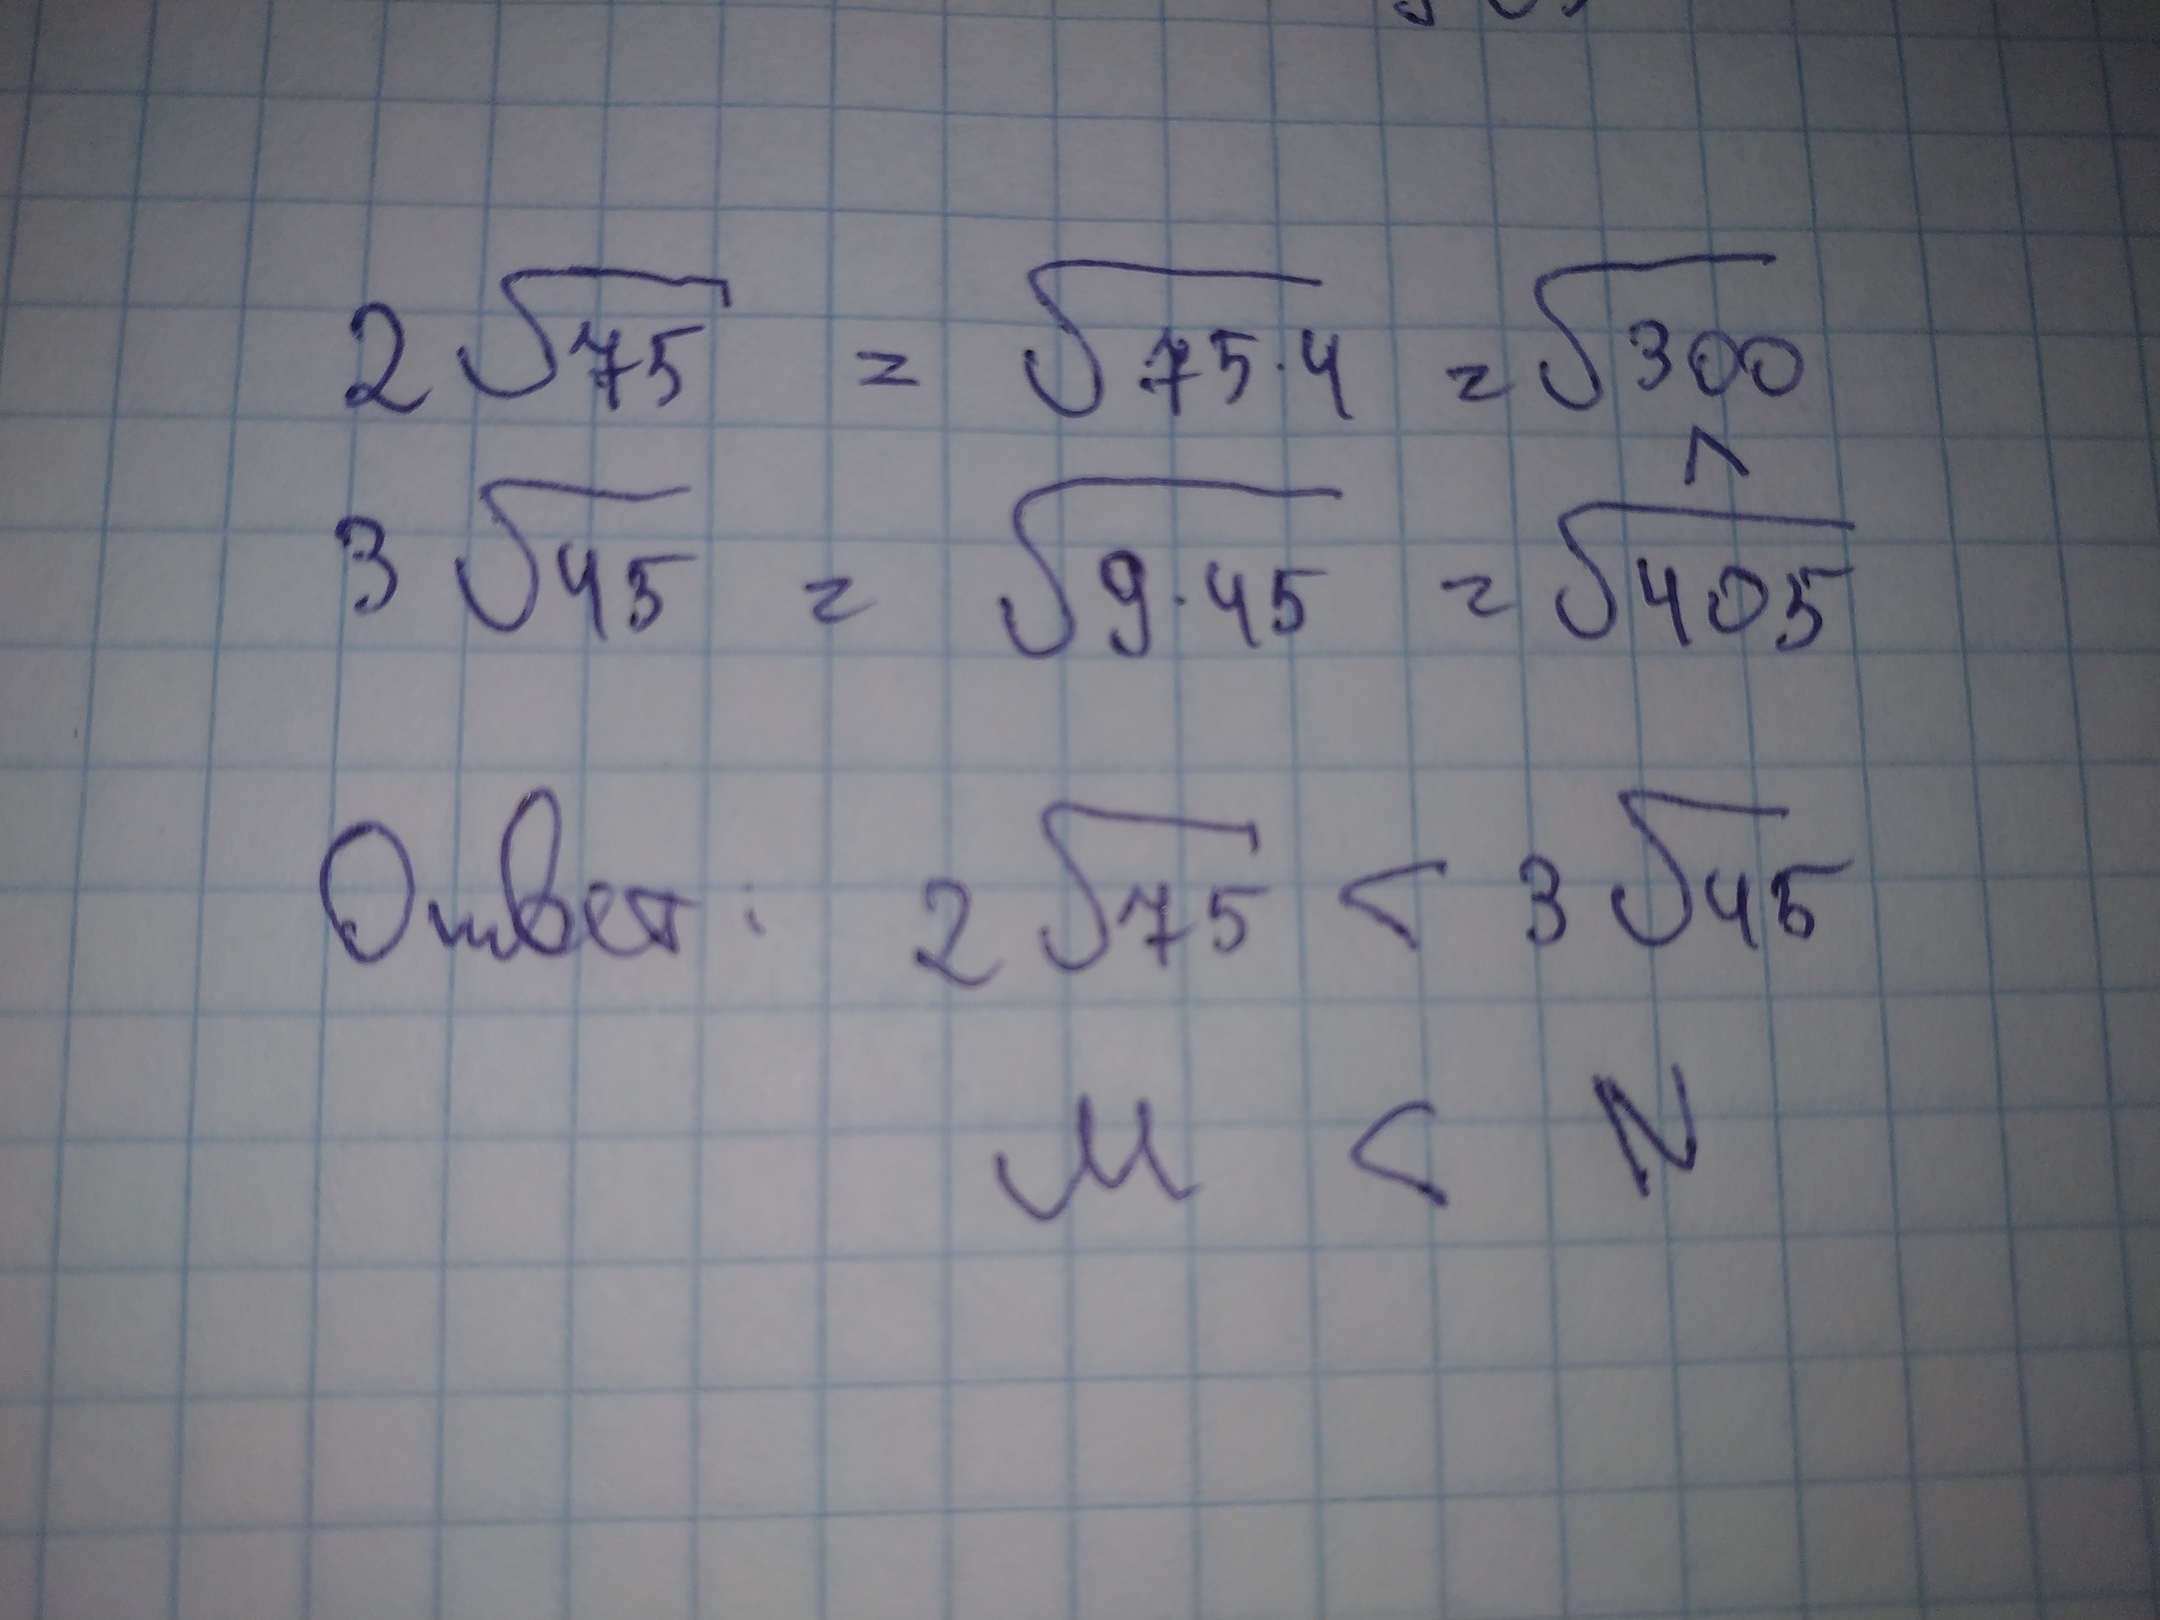 2√75 = √75·4 = √300
^
3√45 = √9·45 = √405
Ответ: 2√75 < 3√45
M < N